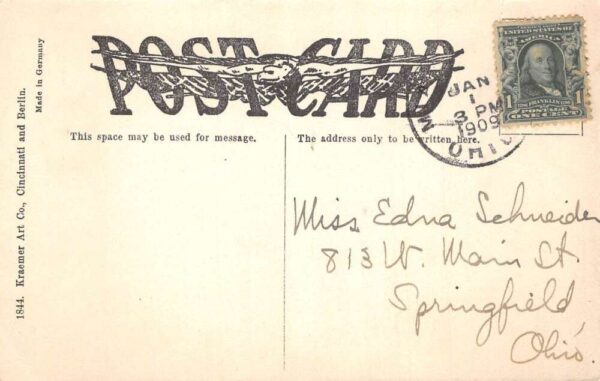 POST CARD
This space may be used for message.
The address only to be written here.
JAN
1
3 PM
1909
OHIO
UNITED STATES OF AMERICA
FRANKLIN
1 1
POSTAGE
ONE CENT
Miss Edna Schneider
813 W. Main St.
Springfield
Ohio.
Made in Germany
1844. Kraemer Art Co., Cincinnati and Berlin.